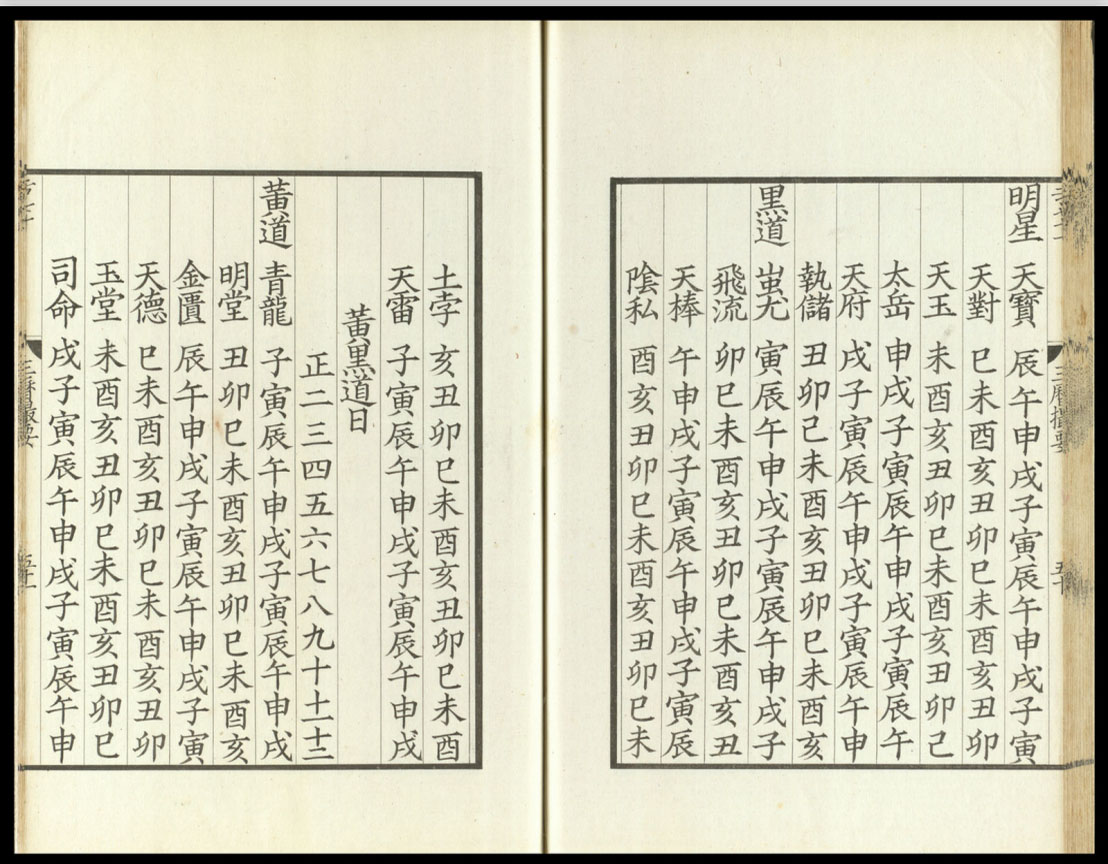 三曆撮要 五十
明星 天寶 辰午申戌子寅辰午申戌子寅
天對 巳未酉亥丑卯巳未酉亥丑卯
天玉 未酉亥丑卯巳未酉亥丑卯己
太岳 申戌子寅辰午申戌子寅辰午
天府 戌子寅辰午申戌子寅辰午申
執儲 丑卯己未酉亥丑卯巳未酉亥
黒道 蚩尤 寅辰午申戌子寅辰午申戌子
飛流 卯巳未酉亥丑卯巳未酉亥丑
天棒 午申戌子寅辰午申戌子寅辰
陰私 酉亥丑卯巳未酉亥丑卯巳未
土孛 亥丑卯巳未酉亥丑卯巳未酉
天雷 子寅辰午申戌子寅辰午申戌
黃黒道日
正二三四五六七八九十十一十二
黃道 青龍 子寅辰午申戌子寅辰午申戌
明堂 丑卯巳未酉亥丑卯巳未酉亥
金匱 辰午申戌子寅辰午申戌子寅
天德 巳未酉亥丑卯巳未酉亥丑卯
玉堂 未酉亥丑卯巳未酉亥丑卯巳
司命 戌子寅辰午申戌子寅辰午申